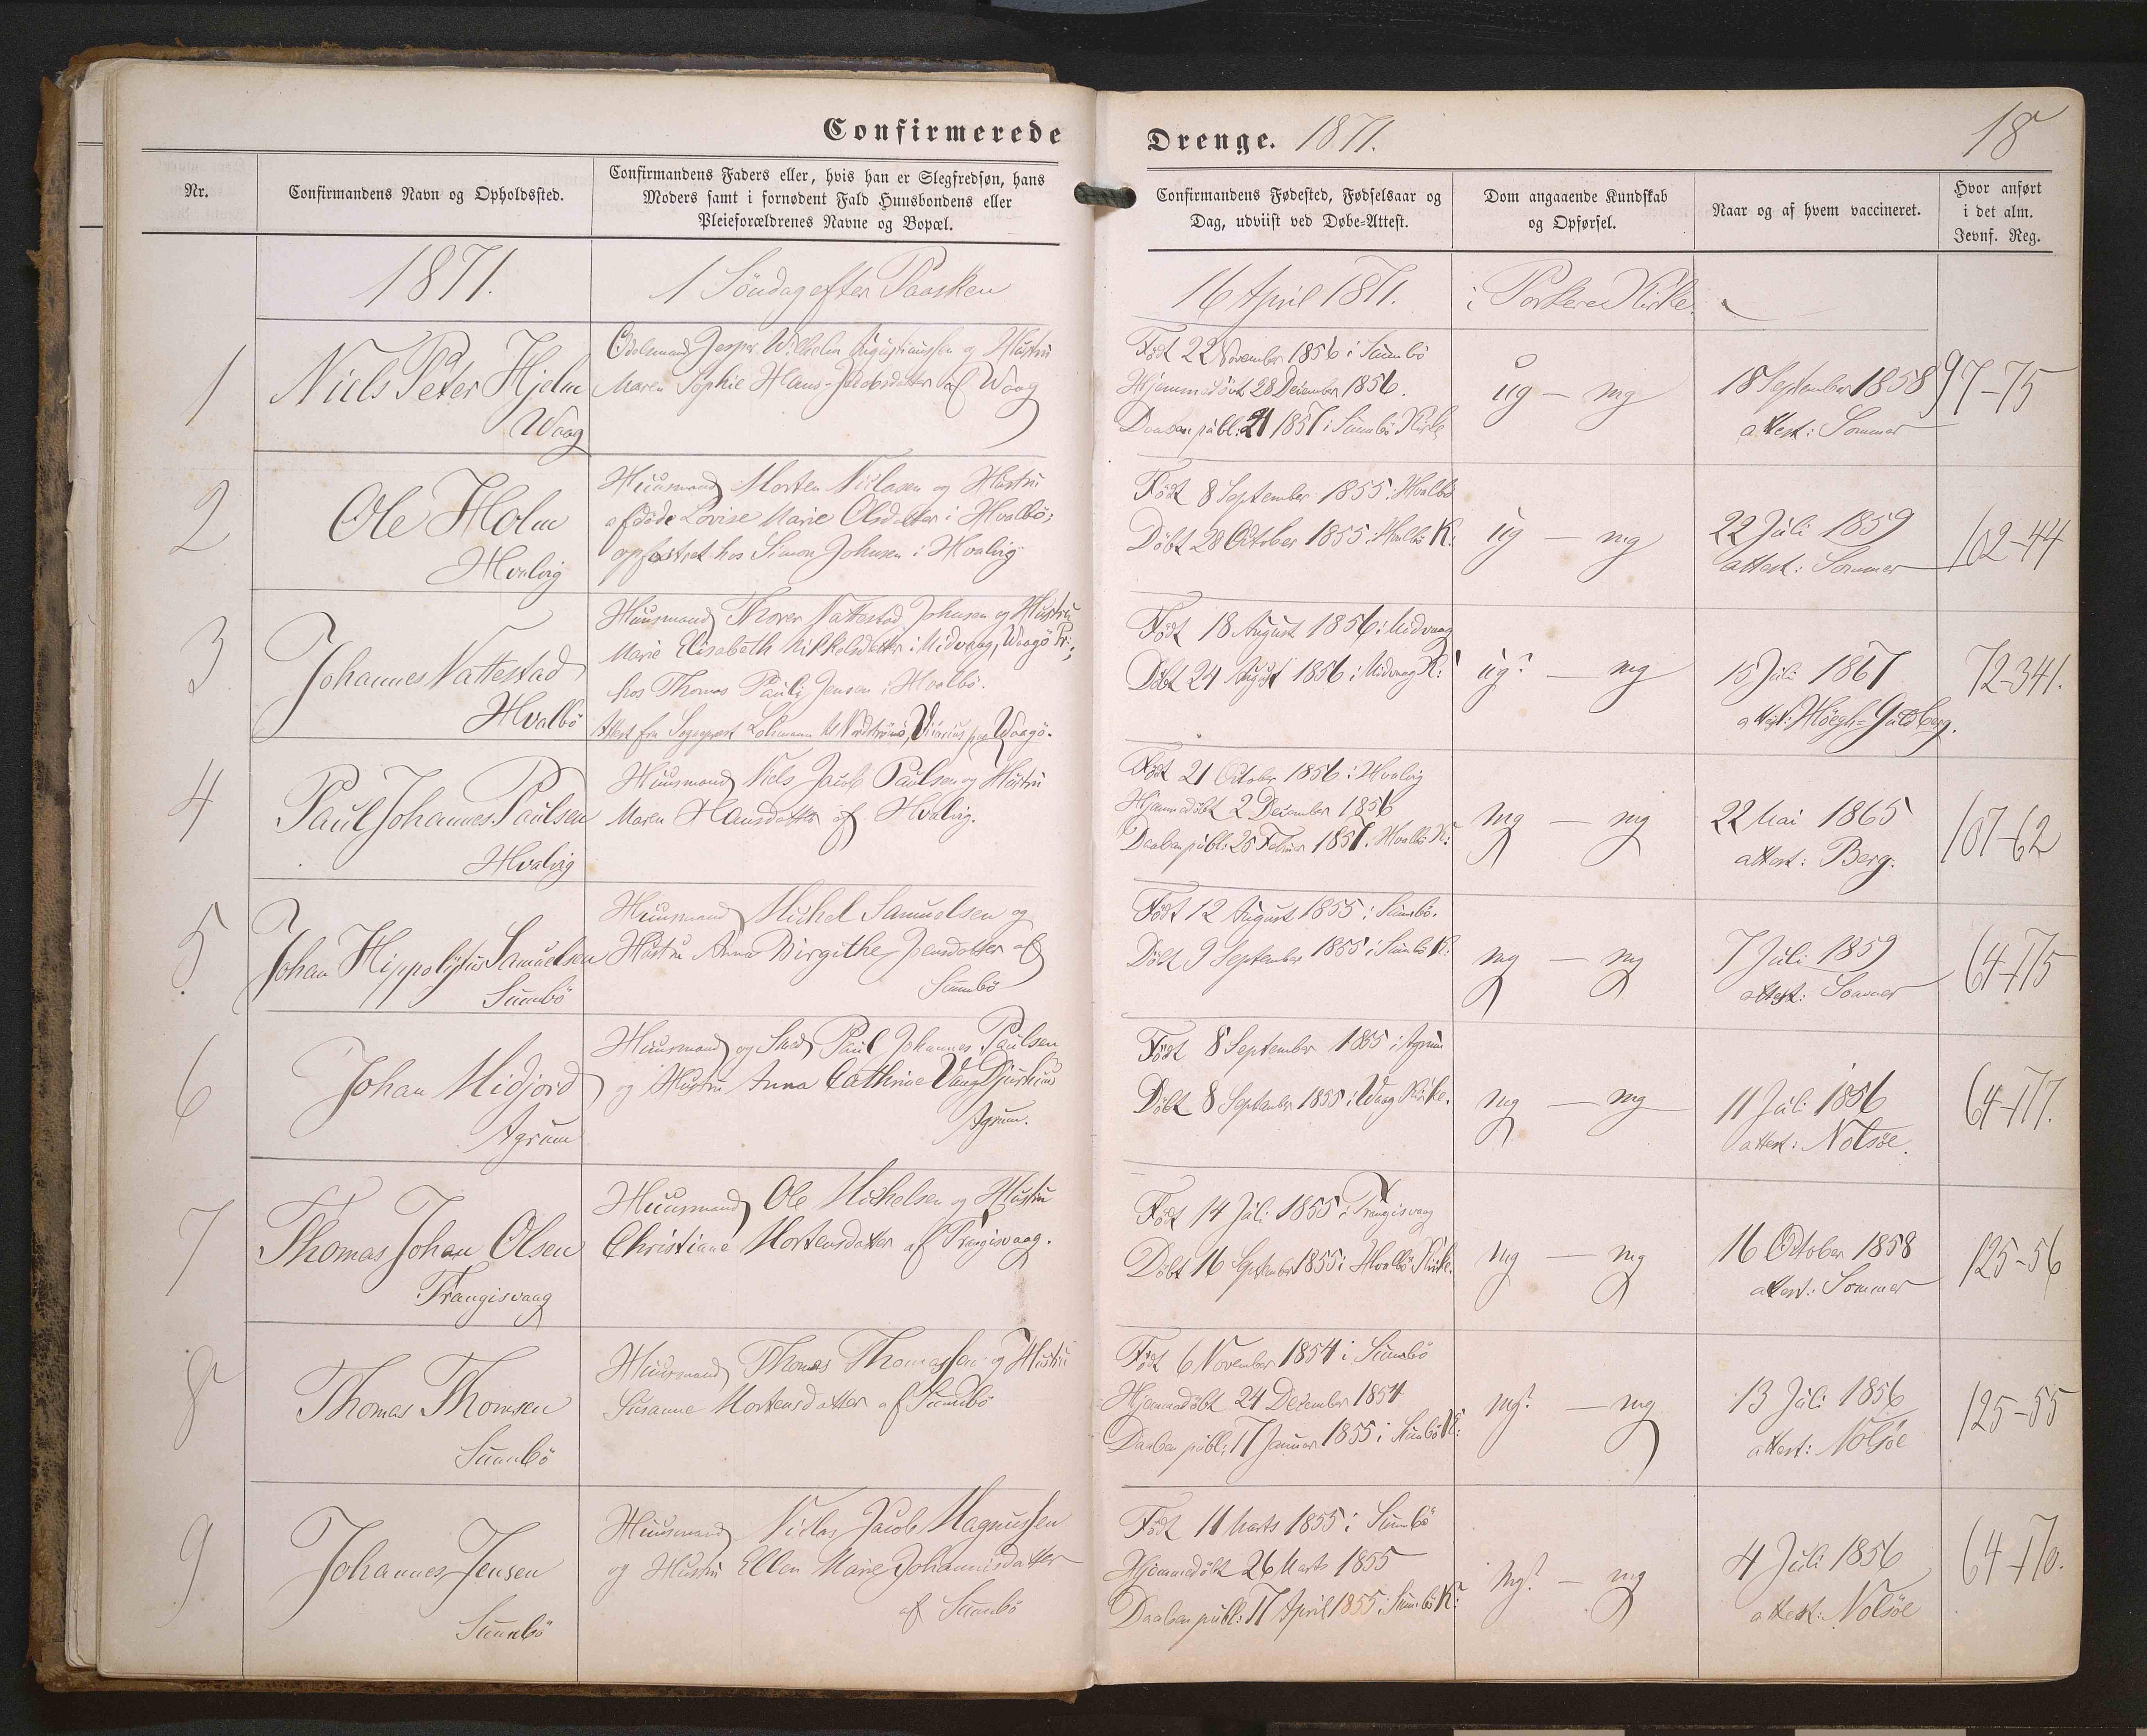 Confirmerede Drenge. 1871. 18
Nr.
Confirmandens Navn og Opholdssted.
Confirmandens Faders eller, hvis han er Slegfredsøn, hans
Moders samt i fornødent Fald Huusbondens eller
Pleieforældrenes Navne og Bopæl.
Confirmandens Fødested, Fødselsaar og
Dag, udviist ved Døbe-Attest.
Dom angaaende Kundskab
og Opførsel.
Naar og af hvem vaccineret.
Hvor anført
i det alm.
Jevnf. Reg.
1871.
1 Söndag efter Paasken
16 April 1871.
i Porkere Kirke.
1
Niels Peter Hjelm
Waag
Odelsmand Jesper Wilhelm Augustinussen og Hustru
Maren Sophie Hans-Jacobsdatter af Waag
Født 22 November 1856 i Sumbö
Hjemmedöbt 28 December 1856.
Daaben publ: 1857 i Sumbö Kirke
ug — mg
18 September 1858
attest: Sommer
97-75
2
Ole Holm
Hvalvig
Huusmand Morten Niclasen og Hustru
afdøde Lovise Marie Olsdatter i Hvalbö;
opfostret hos Simon Johnsen i Hvalvig
Født 8 September 1855 i Hvalbö
Döbt 28 October 1855 i Hvalbö K:
ug — mg
22 Juli 1859
attest: Sommer
102-44
3
Johannes Nattestad
Hvalbö
Huusmand Thorer Nattestad Johnsen og Hustru
Marie Elisabeth Mikkelsdatter i Midvaag, Waagö Pr:;
hos Thomas Pauli Jensen i Hvalbö.
Attest fra Sognepræst Lohmann til Nordströmö, Vicarius paa Waagö.
Født 18 August 1856 i Midvaag
Döbt 24 August 1856 i Midvaag K:
ug? — mg
15 Juli 1867
attest: Höegh-Guldberg.
72-341.
4
Paul Johannes Paulsen
Hvalvig
Huusmand Niels Jacob Paulsen og Hustru
Maren Hansdatter af Hvalvig.
Født 21 October 1856 i Hvalvig
Hjemmedöbt 2 December 1856
Daaben publ: Februar 1857. Hvalbö K:
mg — mg
22 Mai 1865
attest: Berg.
107-62
5
Johan Hippolytus Samuelsen
Sumbö
Huusmand Michel Samuelsen og
Hustru Anna Birgithe Jensdatter af
Sumbö
Født 12 August 1855 i Sumbö.
Döbt 9 September 1855 i Sumbö K:
mg — mg
7 Juli 1859
attest: Sommer
64-175
6
Johan Midjord
Agrum
Huusmand og Paul Johannes Paulsen
og Hustru Anna Cathrine
Agrum.
Født 8 September 1855 i Agrum
Döbt 8 September 1855 i Waag Kirke.
mg — mg
11 Juli 1856
attest: Nolsöe.
64-177.
7
Thomas Johan Olsen
Trangisvaag
Huusmand Ole Michelsen og Hustru
Christiane Mortensdatter af Trangisvaag.
Født 14 Juli 1855 i Trangisvaag
Döbt 16 September 1855 i Hvalbö Kirke.
mg — mg
16 October 1858
attest: Sommer
125-56
8
Thomas Thomsen
Sumbö
Huusmand Thomas Thomassen og Hustru
Susanne Mortensdatter af Sumbö
Født 6 November 1854 i Sumbö
Hjemmedöbt 24 December 1854
Daaben publ: 17 Januar 1855 i Sumbö K:
mg? — mg
13 Juli 1856
attest: Nolsöe
125-55
9
Johannes Jensen
Sumbö
Huusmand Niclas Jacob Magnussen
og Hustru Ellen Marie Johannisdatter
af Sumbö
Født 11 Marts 1855 i Sumbö
Hjemmedöbt 26 Marts 1855
Daaben publ: 17 April 1855 i Sumbö K:
mg? — mg
4 Juli 1856
attest: Nolsöe
64-170.